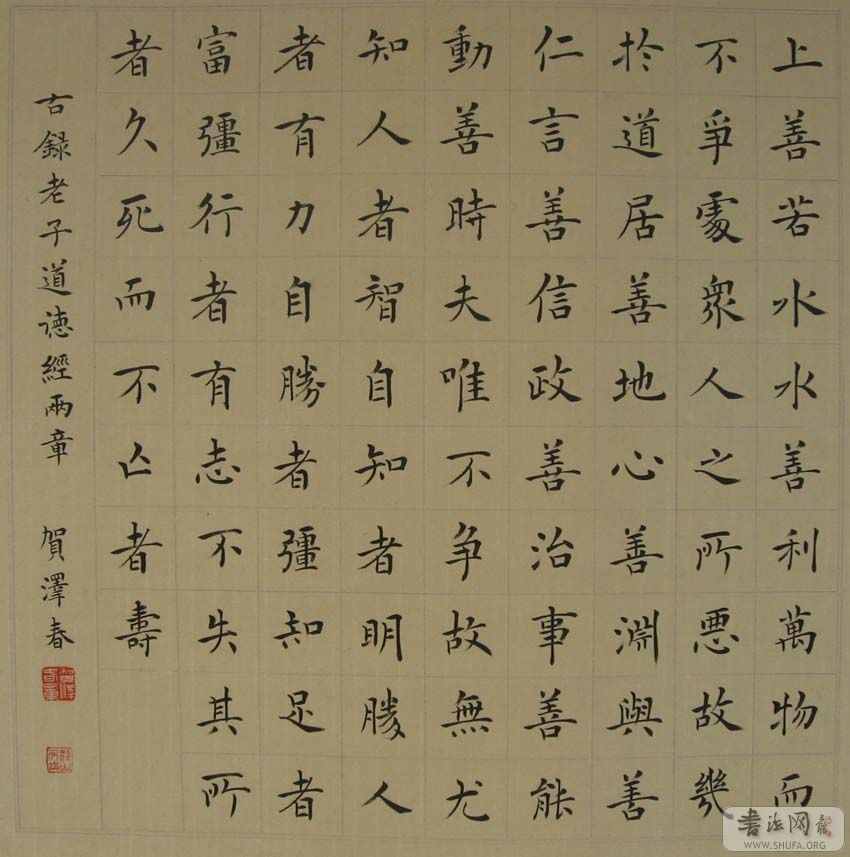 上善若水水善利萬物而
不爭處衆人之所惡故幾
於道居善地心善淵與善
仁言善信政善治事善能
動善時夫唯不争故無尤
知人者智自知者明勝人
者有力自勝者彊知足者
富彊行者有志不失其所
者久死而不亡者壽
古録老子道德經兩章 賀澤春
書法网
WWW.SHUFA.ORG